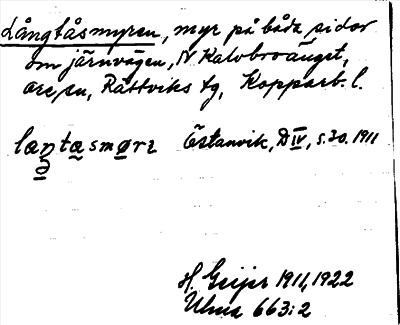 Långtåsmyren, myr på båda sidor
om järnvägen, N Kalvbroänget,
Ore sn, Rättviks tg, Kopparb. l.
Östanvik, D IV, s. 30. 1911
H. Geijer 1911, 1922
Ulma 663:2